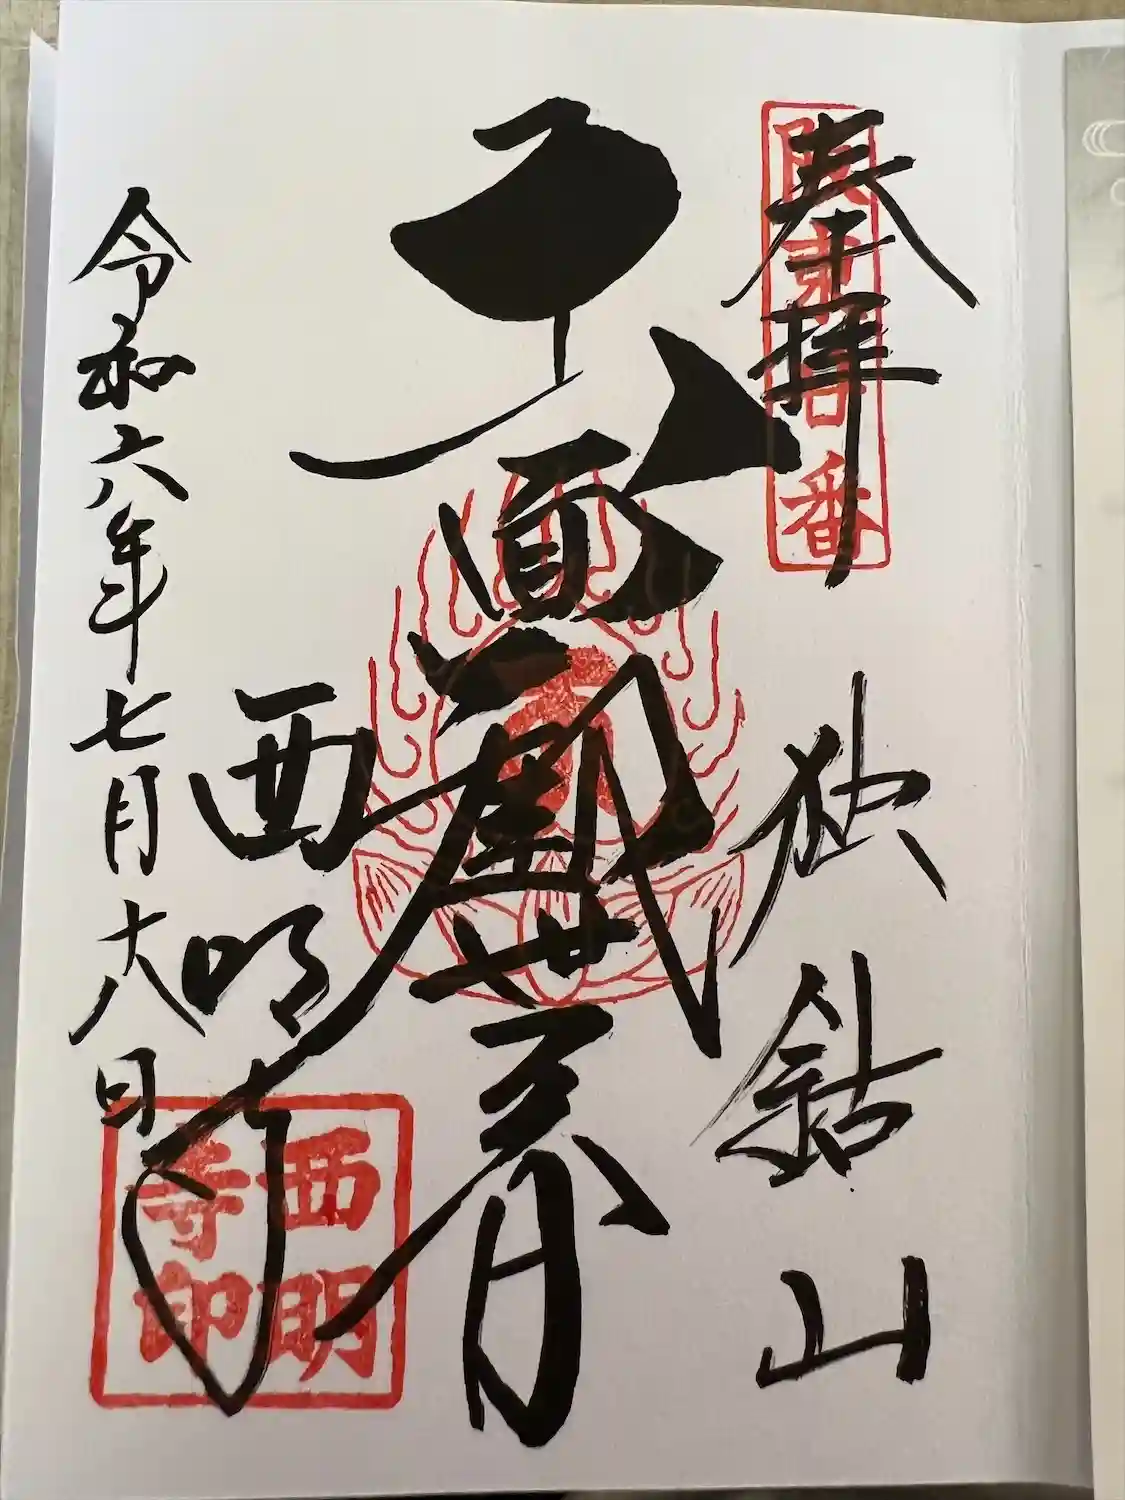 奉拝
独鈷山
十一面観世音
西明寺
令和六年七月十八日
番
西明
寺印